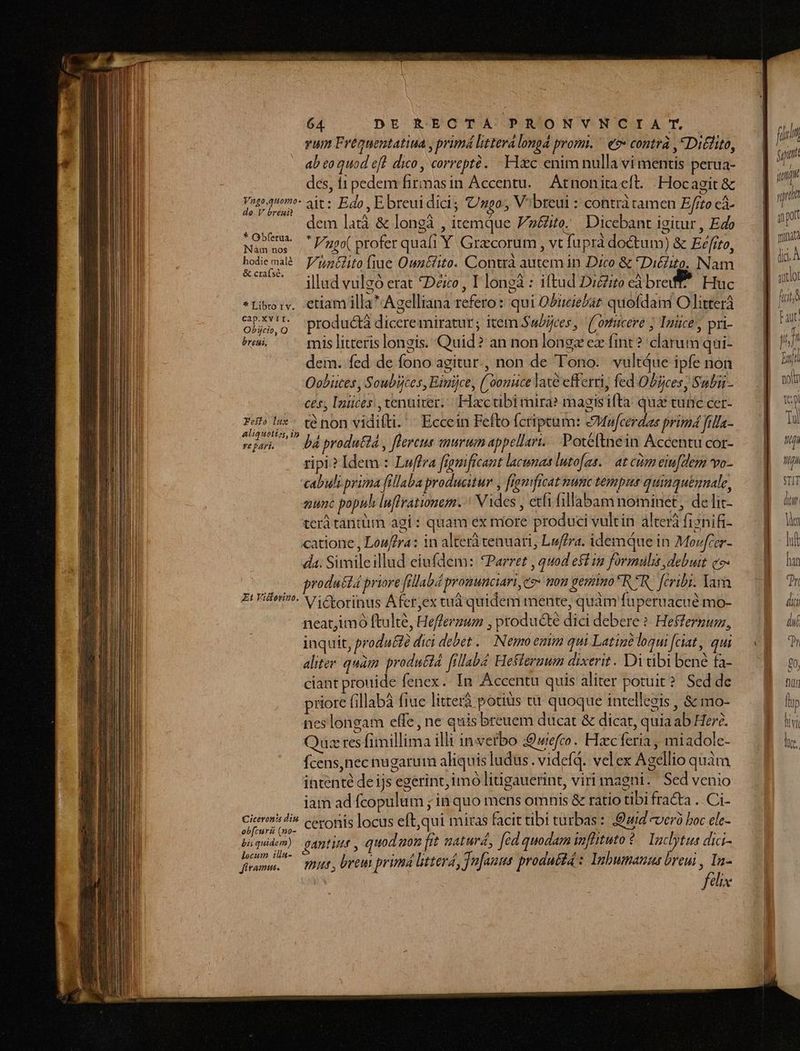 64 DE RECTA PRONVNCIAT.
rum Frequentatiua, primâ litterâ longâ promi. & contrà, Dictito,
ab eo quod est dico, correptè. Hæc enim nulla vi mentis perua-
des, si pedem firmas in Accentu. At non ita est. Hoc agit &
Vngo, quomo-
do V breuit
ait: Edo, E breui dici; Ungo, V breui: contrà tamen Essito eâ-
dem latâ & longâ, itemque Vnctito. Dicebant igitur, Edo
* Obserua.
Nam nos
hodie malè
& crassè.
* Vngo (profer quasi Y Græcorum, vt suprà doctum) & Eéssito,
Vunctito siue Ounctito. Contrà autem in Dico & Dictito. Nam
illud vulgò erat Deico, I longâ: istud Dictito eâ breui. Huc
* Libro IV.
cap. XVII.
Obijcio, O
breui.
etiam illa* Agelliana refero: qui Obiiciebat quosdam O litterâ
productâ dicere miratur; item Subijces, Conicere, Iniice, pri-
mis litteris longis. Quid? an non longæ eæ sint? clarum qui-
dem. sed de sono agitur, non de Tono. vultque ipse non
Oobiices, Soubijces, Einiice, Cooniice latè efferri, sed Obijces, Subii-
ces, Iniices, tenuiter. Hæc tibi mira? magis ista quæ tunc cer-
Festo lux
aliquoties, in
re pari.
tè non vidisti. Ecce in Festo scriptum: Muscerdas primâ silla-
bâ productâ, stercus murum appellari. Potéstne in Accentu cor-
ripi? Idem: Lustra significant lacunas lutosas. at cùm eiusdem vo-
cabuli prima sillaba producitur, significat nunc tempus quinquennale,
nunc populi lustrationem. Vides, etsi sillabam nominet, de lit-
terâ tantùm agi: quam ex more produci vult in alterâ signifi-
catione, Loustra: in alterâ tenuari, Lustra. idemque in Mouscer-
da. Simile illud eiusdem: Parret, quod est in formulis, debuit &
productâ priore sillabâ pronunciari, & non gemino R R scribi. Iam
Et Victorino.
Victorinus Afer, ex tuâ quidem mente, quàm superuacuè mo-
neat, imò stultè, Hesternum, productè dici debere? Hesternum,
inquit, productè dici debet. Nemo enim qui Latinè loqui sciat, qui
aliter quàm productâ sillabâ Hesternum dixerit. Di tibi benè fa-
ciant prouide senex. In Accentu quis aliter potuit? Sed de
priore sillabâ siue litterâ potiùs tu quoque intellegis, & mo-
nes longam esse, ne quis breuem ducat & dicat, quia ab Herè.
Quæ res simillima illi in verbo Quiesco. Hæc feria, mi adole-
scens, nec nugarum aliquis ludus. videsq. vel ex Agellio quàm
intentè de ijs egerint, imò litigauerint, viri magni. Sed venio
iam ad scopulum; in quo mens omnis & ratio tibi fracta. Ci-
Ciceronis diu
obscuri (no-
bis quidem)
locum illu-
stramus.
ceronis locus est, qui miras facit tibi turbas: Quid verò hoc ele-
gantius, quod non fit naturâ, sed quodam instituto? Inclytus dici-
mus, breui primâ litterâ, Insanus productâ: Inhumanus breui, In-
felix